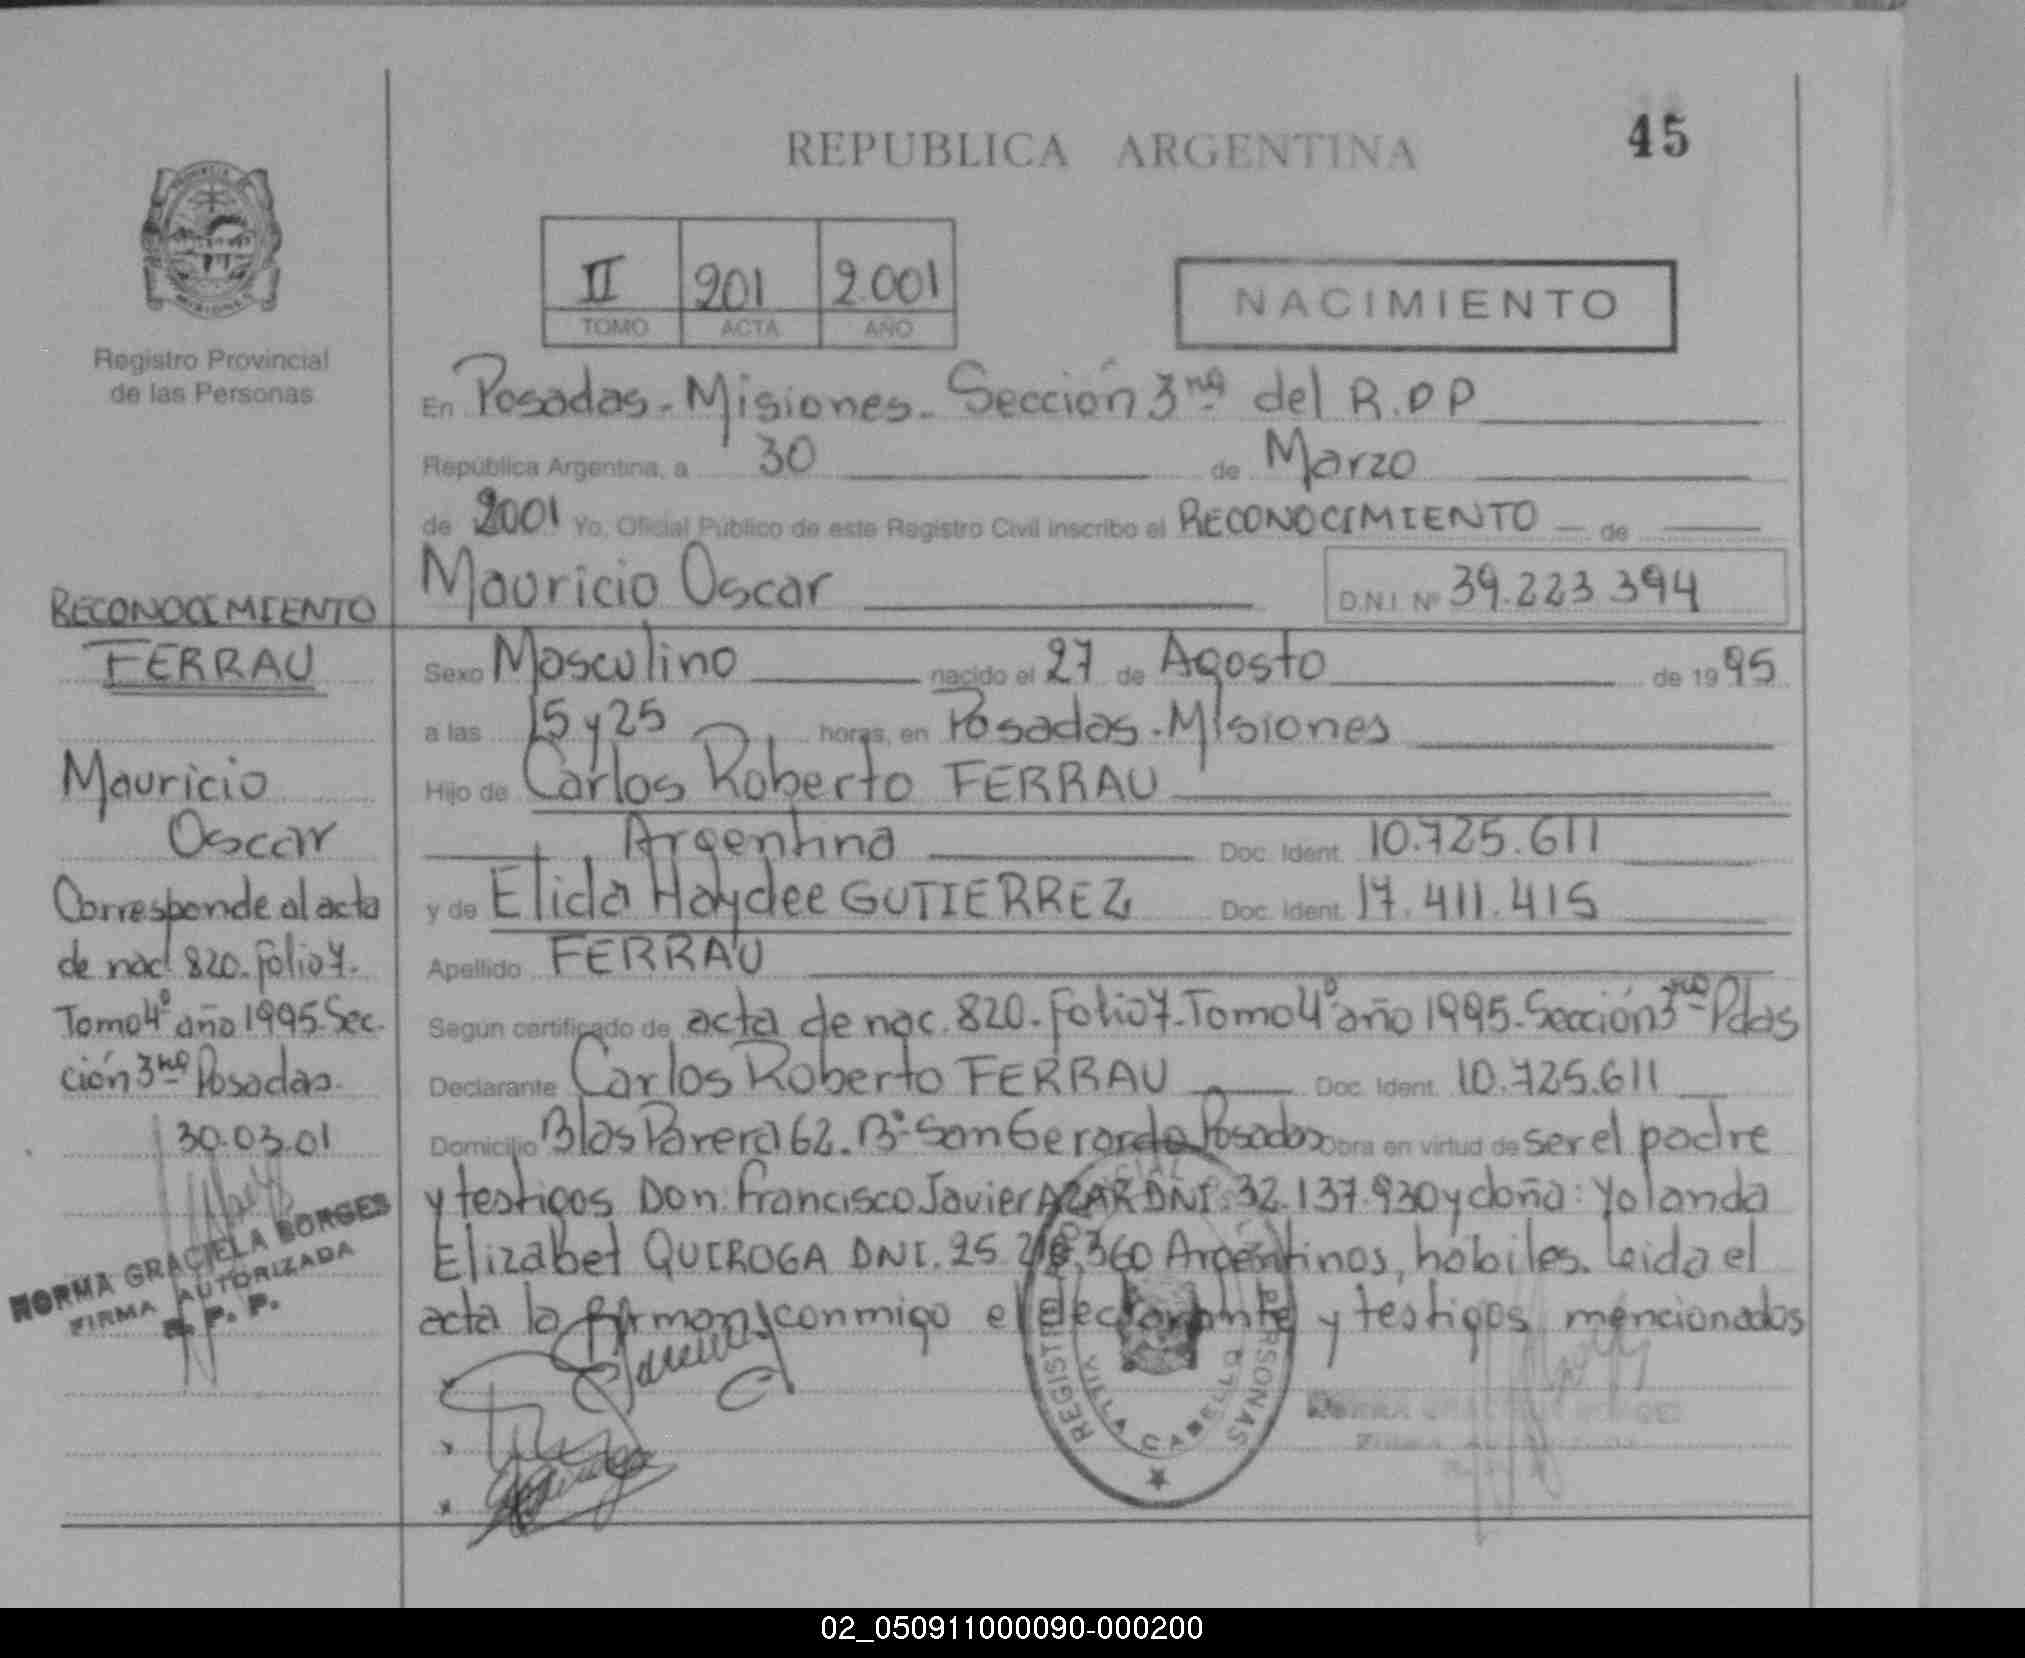 REPUBLICA ARGENTINA
45
II 201 2.001
TOMO ACTA AÑO
NACIMIENTO
Registro Provincial
de las Personas
En Posadas - Misiones - Sección 3ra del R.P.P
República Argentina, a 30 de Marzo
de 2001 Yo, Oficial Público de este Registro Civil inscribo el RECONOCIMIENTO de
Mauricio Oscar D.N.I. Nº 39.223.394
Sexo Masculino nacido el 27 de Agosto de 1995
a las 15 y 25 horas, en Posadas - Misiones
Hijo de Carlos Roberto FERRAU
Argentina Doc. Ident. 10.725.611
y de Elida Haydee GUTIERREZ Doc. Ident. 17.411.415
Apellido FERRAU
Según certificado de acta de nac. 820. folio 7. Tomo 4º año 1995. Sección 3ra Pdas
Declarante Carlos Roberto FERRAU Doc. Ident. 10.725.611
Domicilio Blas Parera 62. Bº San Gerardo Posadas Obra en virtud de ser el padre
y testigos Don: Francisco Javier AZAR DNI: 32.137.930 y doña: Yolanda
Elizabet QUIROGA DNI. 25. .360 Argentinos, hábiles. Leida el
acta la firman conmigo el declarante y testigos mencionados
RECONOCIMIENTO
FERRAU
Mauricio
Oscar
Corresponde al acta
de nac. 820. folio 7.
Tomo 4º año 1995. Sec.
ción 3ra Posadas.
30.03.01
NORMA GRACIELA BORGES
FIRMA AUTORIZADA
R. P. P.
VILLA CABELLO
NORMA GRACIELA BORGES
FIRMA AUTORIZADA
R. P. P.
02_050911000090-000200